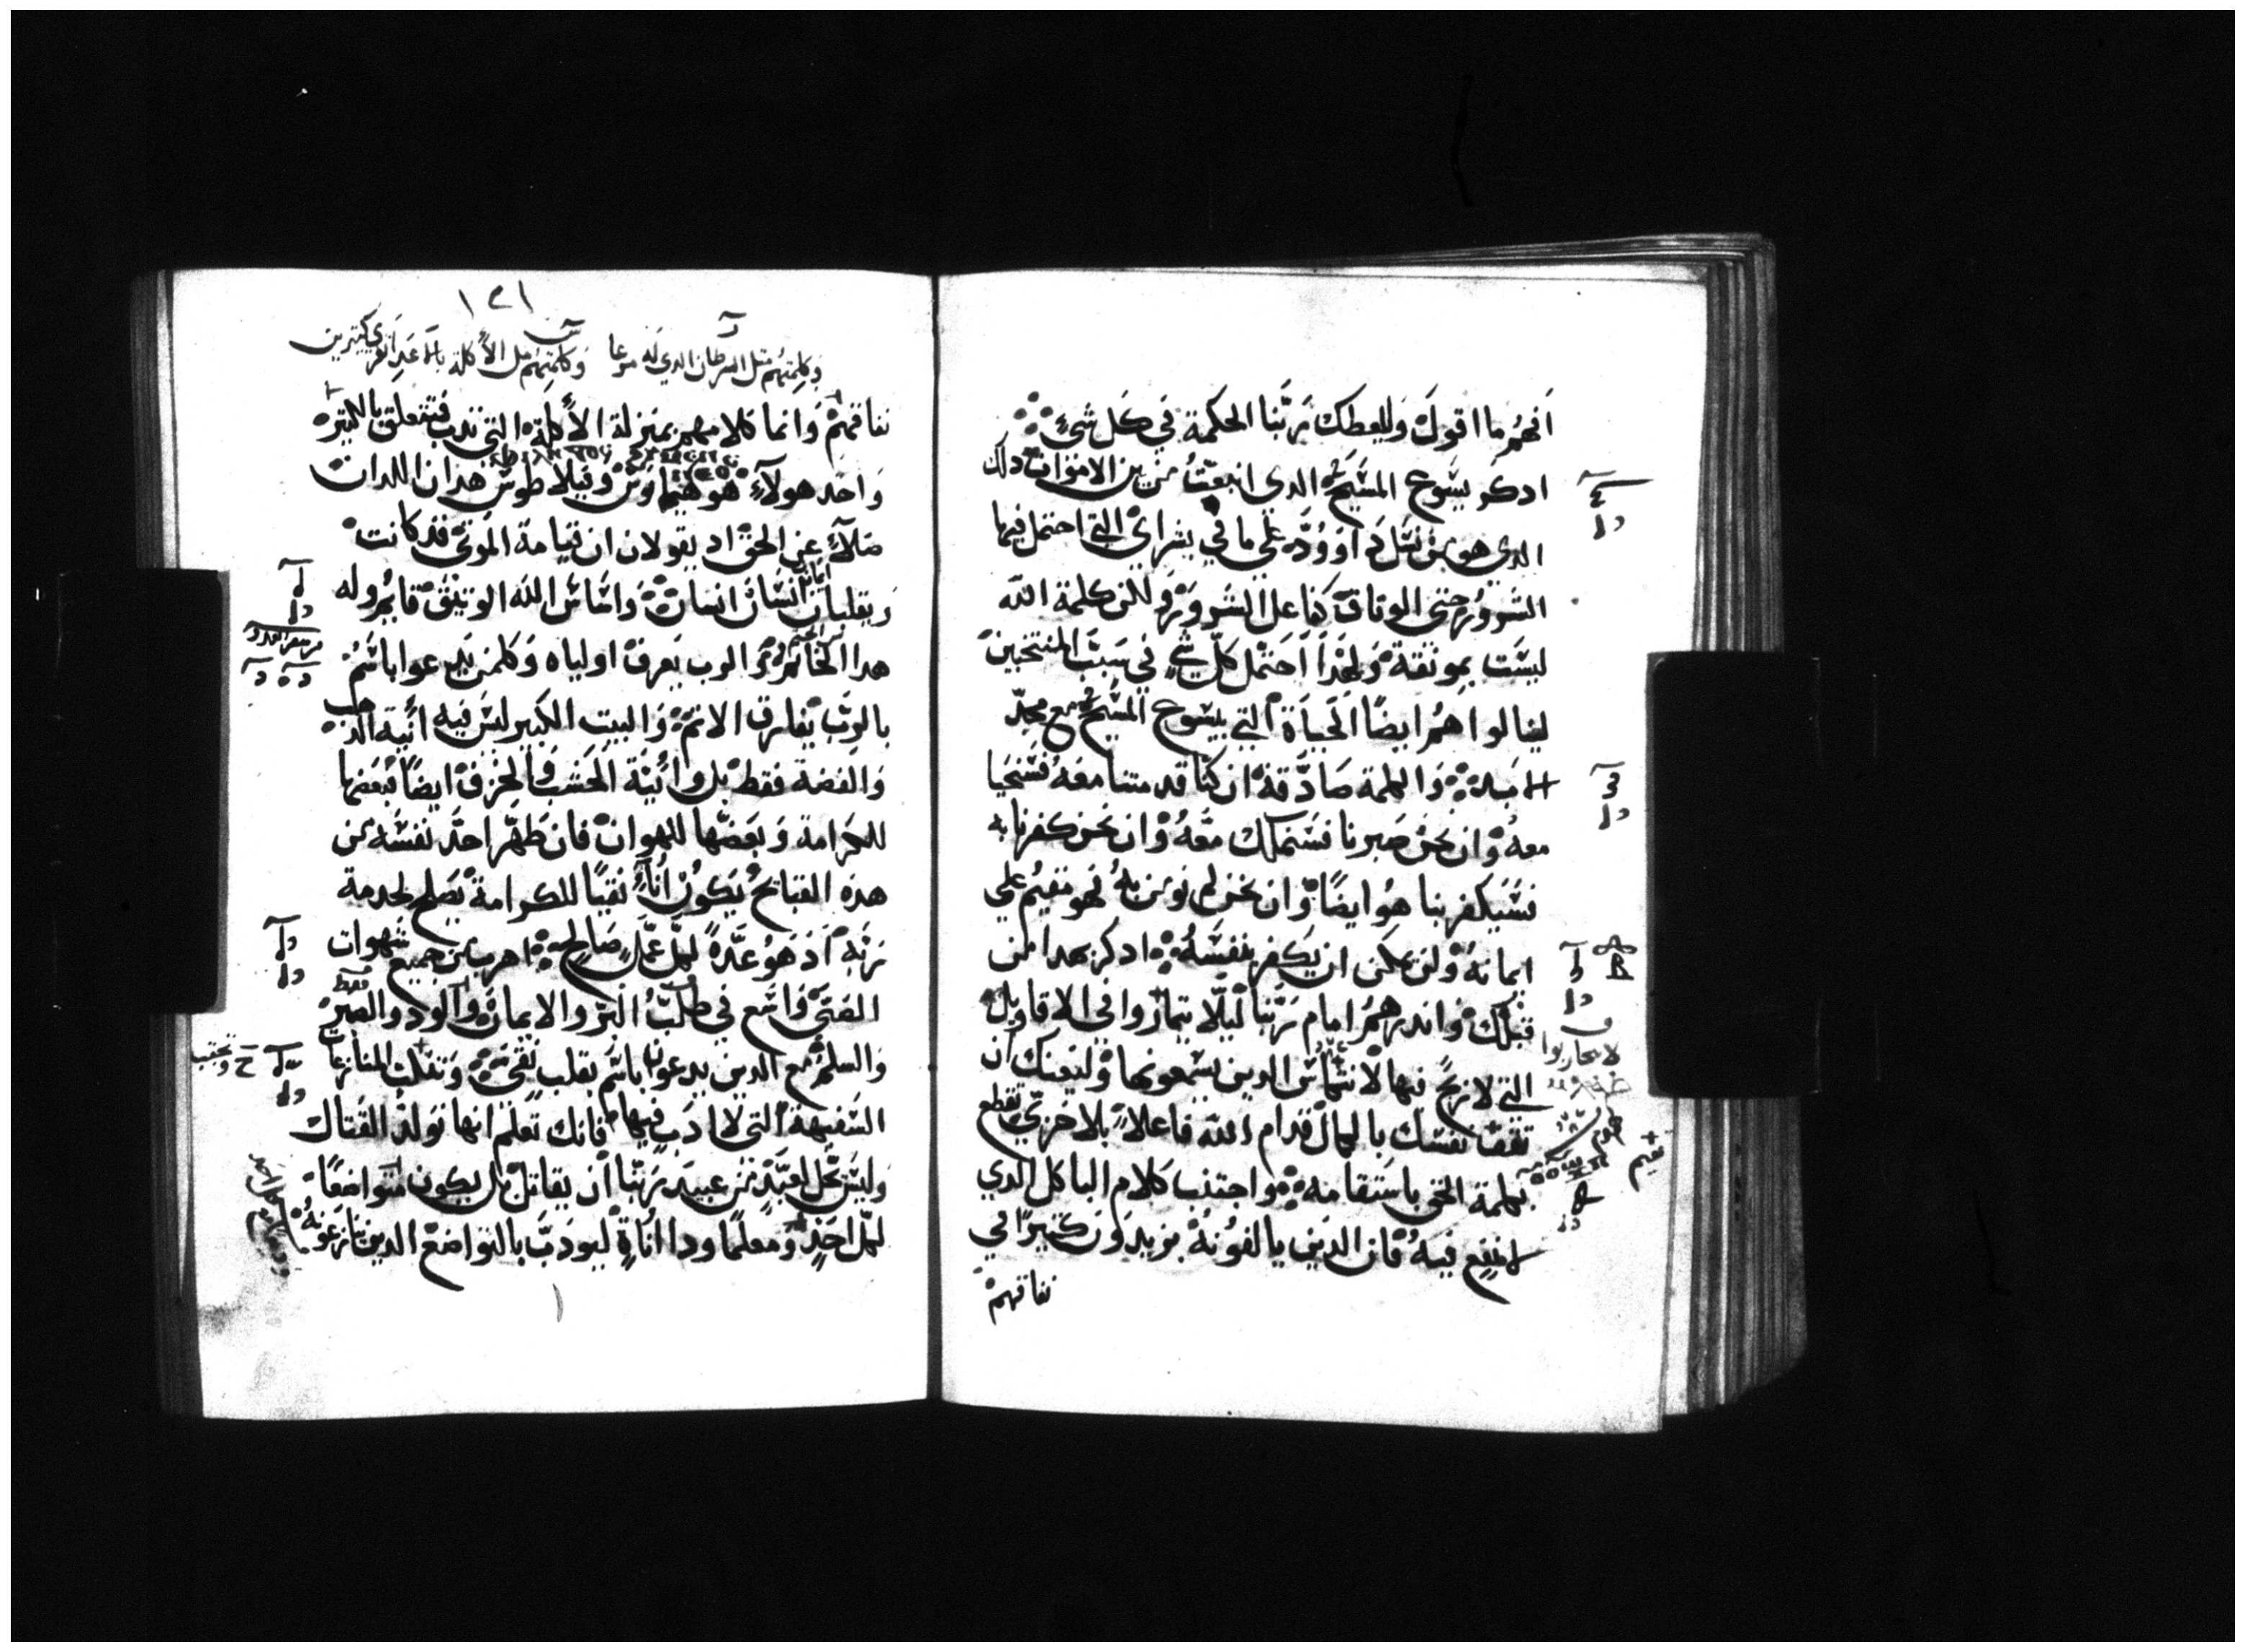 افهم ما اقول وليعطك ربنا الحكمة في كل شيء
ادكر يسوع المسيح الدي انبعث من بين الاموات دلك
الدي هو من نسل داوود علي ما في بشراي التي احتمل فيها
الشرور حتى الوتاق كفاعل الشرور ولكن كلمة الله
ليست بموثقة ولهدا احتمل كل شي في سبب المنتخبين
لينالوا هم ايضا الحياة التي بيسوع المسيح مع مجد
الابد والكلمة صادقة ان كنا قد متنا معه فسنحيا
معه وان نحن صبرنا فسنملك معه وان نحن كفرنا به
فسيكفر بنا هو ايضا وان نحن لم نومن به فهو مقيم علي
ايمانه ولن يمكن ان يكفر بنفسه ادكر بهدا من
قبلك واندرهم امام ربنا ليلا يتماروا في الاقاويل
التي لا ربح فيها لانتماس الدين يسمعونها وليعنك ان
تقف نفسك بالكمال قدام الله فاعلا بلا خزي تقطع
بكلمة الحق باستقامه واجتنب كلام الباطل الدي
لا نفع فيه فان الدين يالفونه يزيدون كثيرا في
نفاقهم
لا يحاربوا
١٢١
وكلمتهم متل السرطان الدي له مرعا وكلمتهم متل الأكلة
نفاقهم وانما كلامهم بمنزلة الأكلة التي تدب فتتعلق بالكتيره
واحد هولاء هو هيماوس وفيلاطوس هدان اللدان
ضلا عن الحق اد يقولان ان قيامة الموتى قد كانت
ويقلبان ايمان انسان انسان واساس الله الوتيق قايم وله
هدا الخاتم الرب يعرف اولياه وكلمن يدعوا باسم
بالرب يفارق الاثم والبيت الكبير ليس فيه انية الدهب
والفضة فقط بل وانية الخشب والخزف ايضا فبعضها
للكرامة وبعضها للهوان فان طهر احد نفسه من
هده القبايح يكون اناء نقيا للكرامة يصلح لخدمة
ربه اد هو عدة لكل عمل صالح اهرب من جميع شهوات
الفتى واسع في طلب البر والايمان والود والصبر
والسلم مع الدين يدعون باسم بقلب نقي وتفلت المنازعات
السفيهة التي لا ادب فيها فانك تعلم انها تولد القتال
وليس يحل لعبد من عبيد ربنا ان يقاتل بل يكون متواضعا
لكل احد ومعلما ودا اناة ليودب بالتواضع الدين نازعونه